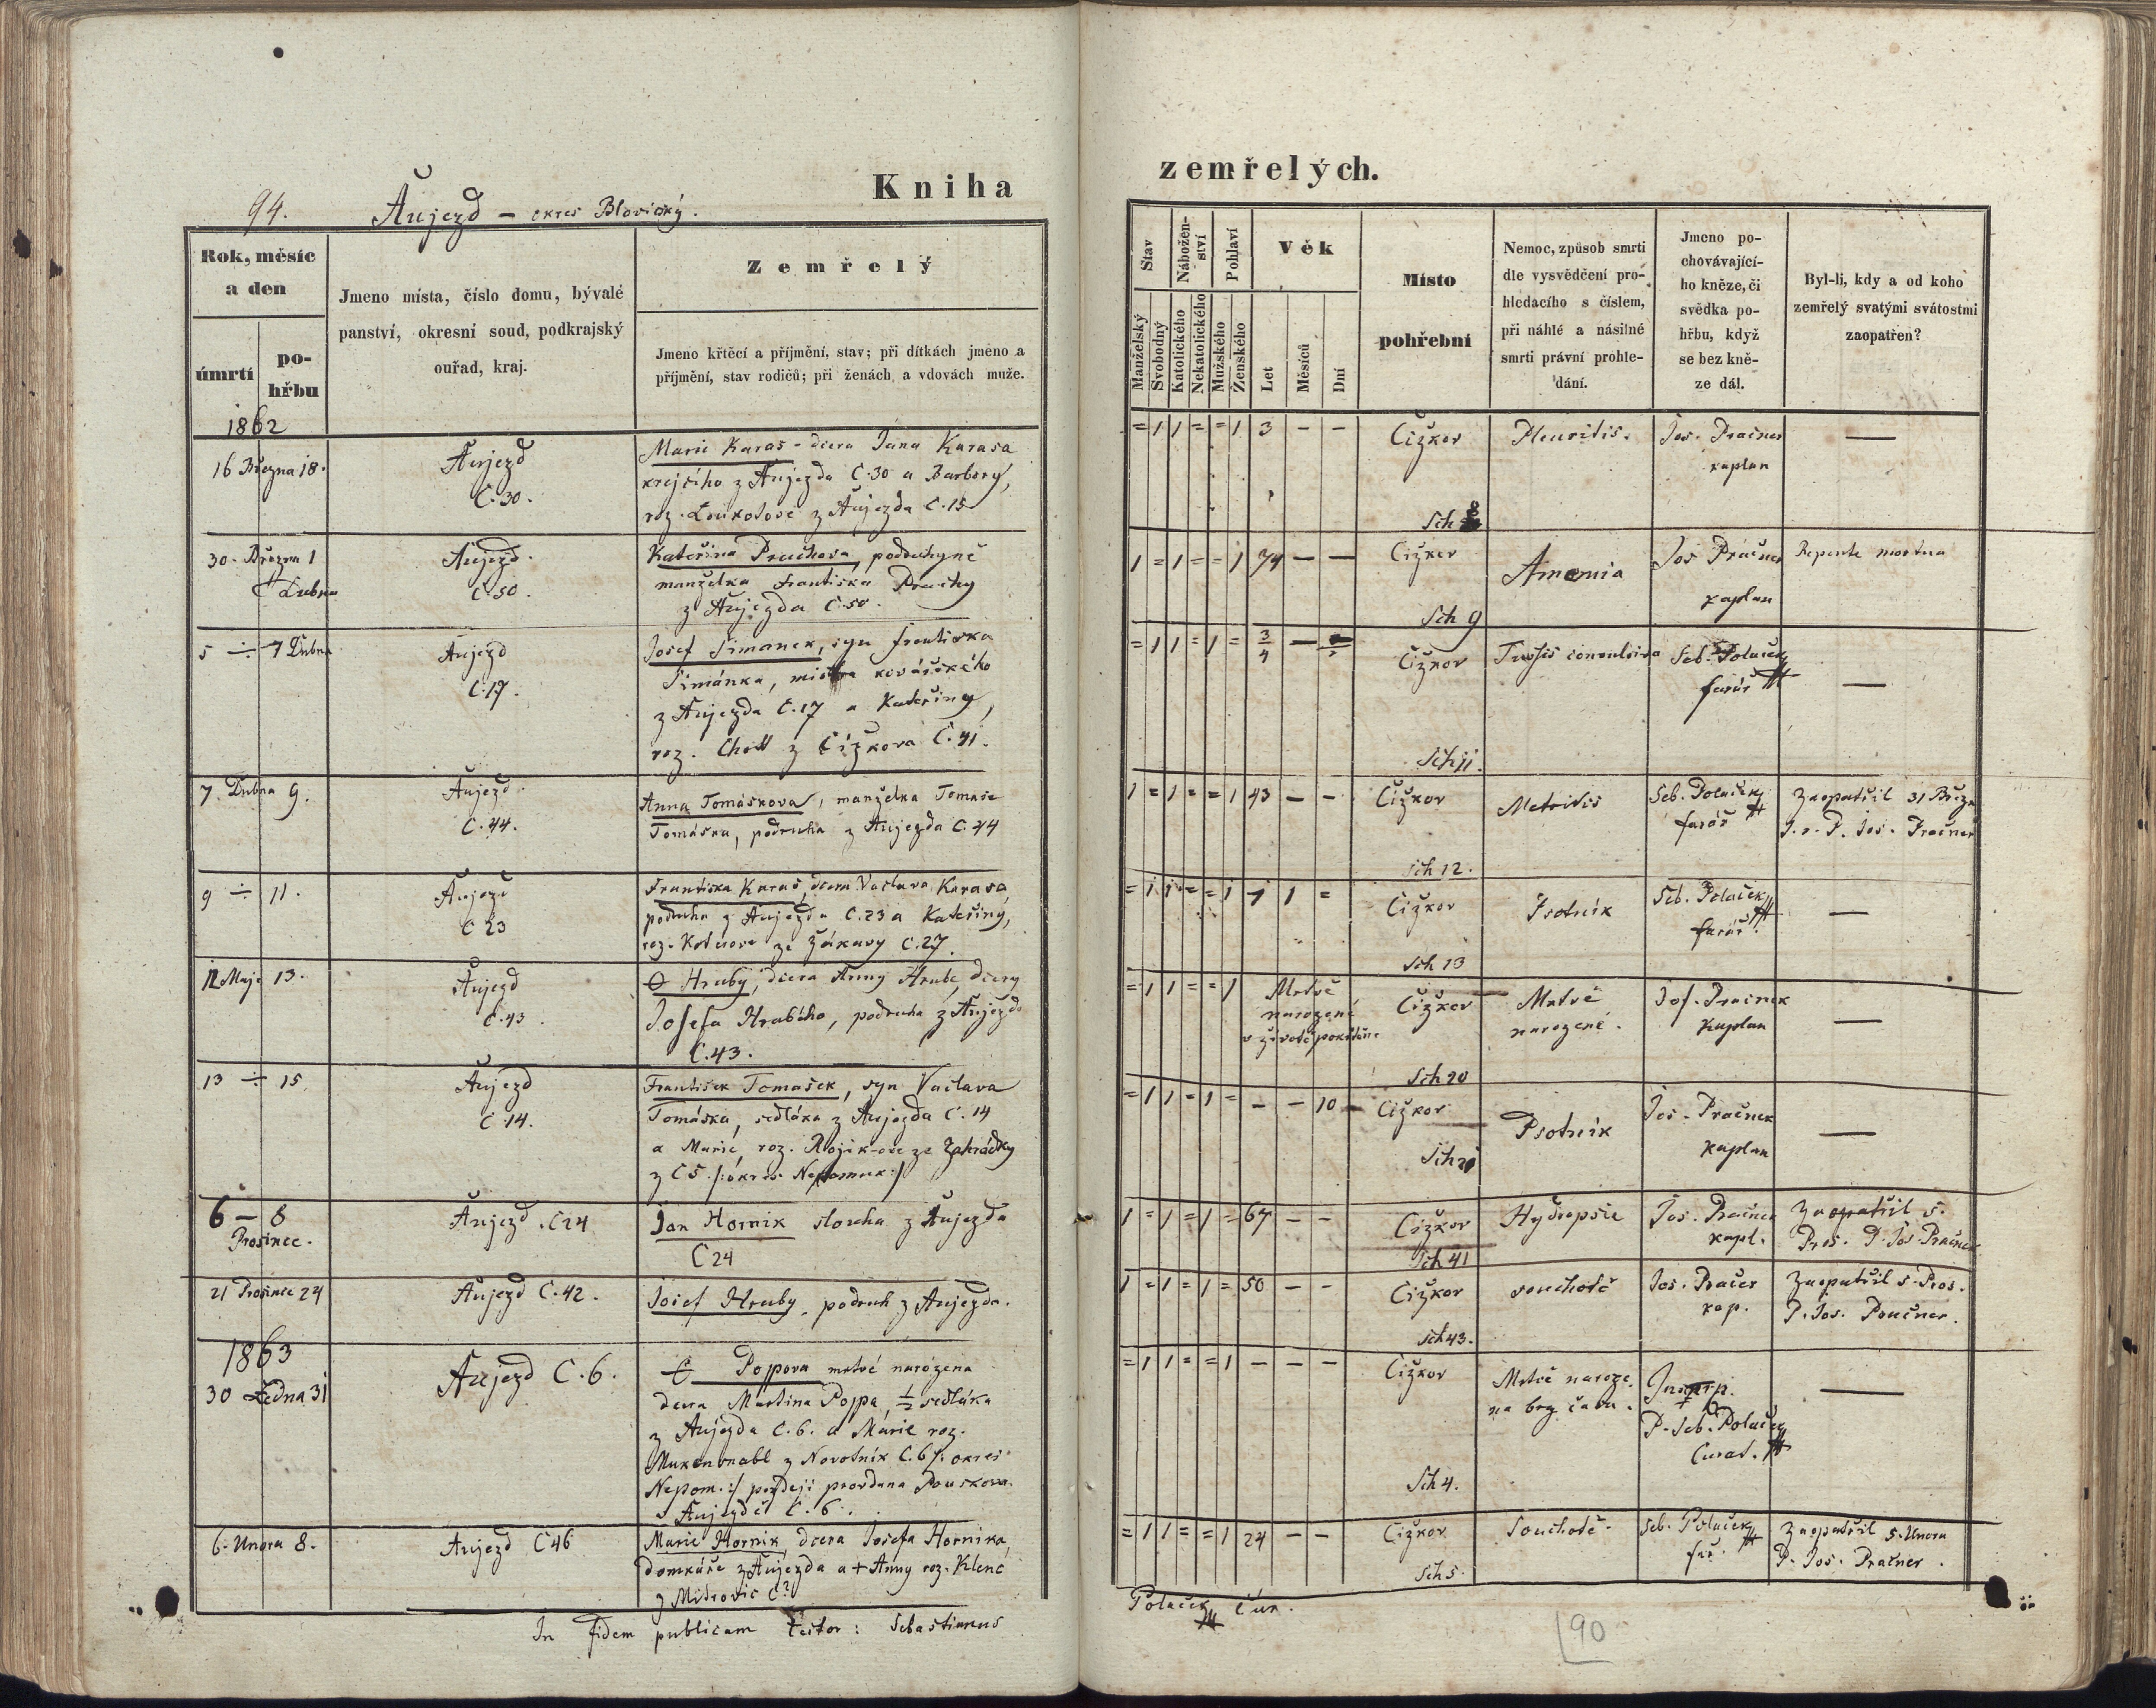 94. Aujezd - okres Blovický.
Kniha
Rok, měsíc
a den
úmrtí
po-
hřbu
Jmeno místa, číslo domu, bývalé
panství, okresní soud, podkrajský
ouřad, kraj.
Zemřelý
Jmeno křtěcí a příjmění, stav; při dítkách jmeno a
příjmění, stav rodičů; při ženách a vdovách muže.
1862
16 Března 18.
Aujezd
C. 30.
Marie Karas - dcera Jana Karasa
krejčího z Aujezda C. 30 a Barbory,
roz. Loukotove z Aujezda C. 15
30. Března 1
Dubna
Aujezd.
C. 50.
Kateřina Pruchova, podruhyně
manželka Františka Pruchy
z Aujezda C. 50.
5 ÷ 7 Dubna
Aujezd
C. 17.
Josef Simanek, syn Františka
Simánka, mistra kovářského
z Aujezda C. 17 a Kateřiny,
roz. z Čížkova C. 41.
7. Dubna 9.
Aujezd.
C. 44.
Anna Tomáskova, manželka Tomaše
Tomáska, podruha z Aujezda C. 44
9 ÷ 11.
Aujezd
C 23
Frantiska Karas, dcera Vaclava Karasa
podruha z Aujezda C. 23 a Kateřiny,
roz. ze Žákavy C. 27.
12 Maje 13.
Aujezd
C. 43.
Hruby, dcera Anny Hrube, dcery
Josefa Hrubého, podruha z Aujezda
C. 43.
13 ÷ 15.
Aujezd
C 14.
František Tomašek, syn Vaclava
Tomáska, sedláka z Aujezda C. 14
a Marie, roz. ze Zahrádky
z C 5 /: okres Nepomuk :/
6 - 8
Prosince.
Aujezd. C 24
Jan Hornik sloucha z Aujezda
C 24
21 Prosince 24
Aujezd C. 42.
Josef Hruby, podruh z Aujezda.
1863
30 Ledna 31
Aujezd C. 6.
Poppova mrtvé narozena
dcera Martina Poppa, ½ sedláka
z Aujezda C. 6. a Marie roz.
z Novotnik C. 6 /: okres
Nepom. :/ později provdana Pouskova
v Aujezdě C. 6.
6. Unora 8.
Aujezd C 46
Marie Hornik, dcera Josefa Hornika,
domkáře z Aujezda a + Anny roz. Klenc
z Mitrovic C. ?
In fidem publicam testor: Sebastianus
zemřelých.
Stav
Nábožen-
ství
Pohlaví
Věk
Manželský
Svobodný
Katolického
Nekatolického
Mužského
Ženského
Let
Měsíců
Dní
Místo
pohřební
Nemoc, způsob smrti
dle vysvědčení pro-
hledacího s číslem,
při náhlé a násilné
smrti právní prohle-
dání.
Jmeno po-
chovávající-
ho kněze, či
svědka po-
hřbu, když
se bez kně-
ze dál.
Byl-li, kdy a od koho
zemřelý svatými svátostmi
zaopatřen?
= 1 1 = = 1 3 - -
Čížkov
Sch 8
Pleuritis.
Jos. Pračner
kaplan
—
1 = 1 = = 1 74 - -
Čížkov
Sch 9
Anemia
Jos Pračner
kaplan
Repente mortua
= 1 1 = 1 = 3/4 -
Čížkov
Sch 11.
Tussis convulsiva
Seb. Polaček
farář
—
1 = 1 = = 1 43 - -
Čížkov
Sch 12.
Metritis
Seb. Polaček
farář
Zaopatřil 31 Březn
P. Jos. Pračner
= 1 1 = = 1 1 1 =
Čížkov
Sch 13
Psotnik
Seb. Polaček
farář.
—
= 1 1 = = 1
Mrtvě
narozené
v životě pokřtěné
Čížkov
Sch 20
Mrtvě
narozené.
Jos. Pračner
kaplan
—
= 1 1 = 1 = - - 10
Čížkov
Sch 21
Psotnik
Jos. Pračner
kaplan
—
1 = 1 = 1 = 67 - -
Čížkov
Sch 41
Hydropsie
Jos. Pračner
kapl.
Zaopatřil 5.
Pros. P. Jos. Pračner
1 = 1 = 1 = 50 - -
Čížkov
Sch 43.
souchotě
Jos. Pračer
kap.
Zaopatřil 5. Pros.
P. Jos. Pračner.
= 1 1 = = 1 - - -
Čížkov
Sch 4.
Mrtvě naroze-
na bez času.
P. Seb. Polaček
Curat.
—
= 1 1 = = 1 24 - -
Čížkov
Sch 5.
Souchotě.
Seb. Polaček
far.
Zaopatřil 5. Unora
P. Jos. Pračner.
Polaček cur.
90